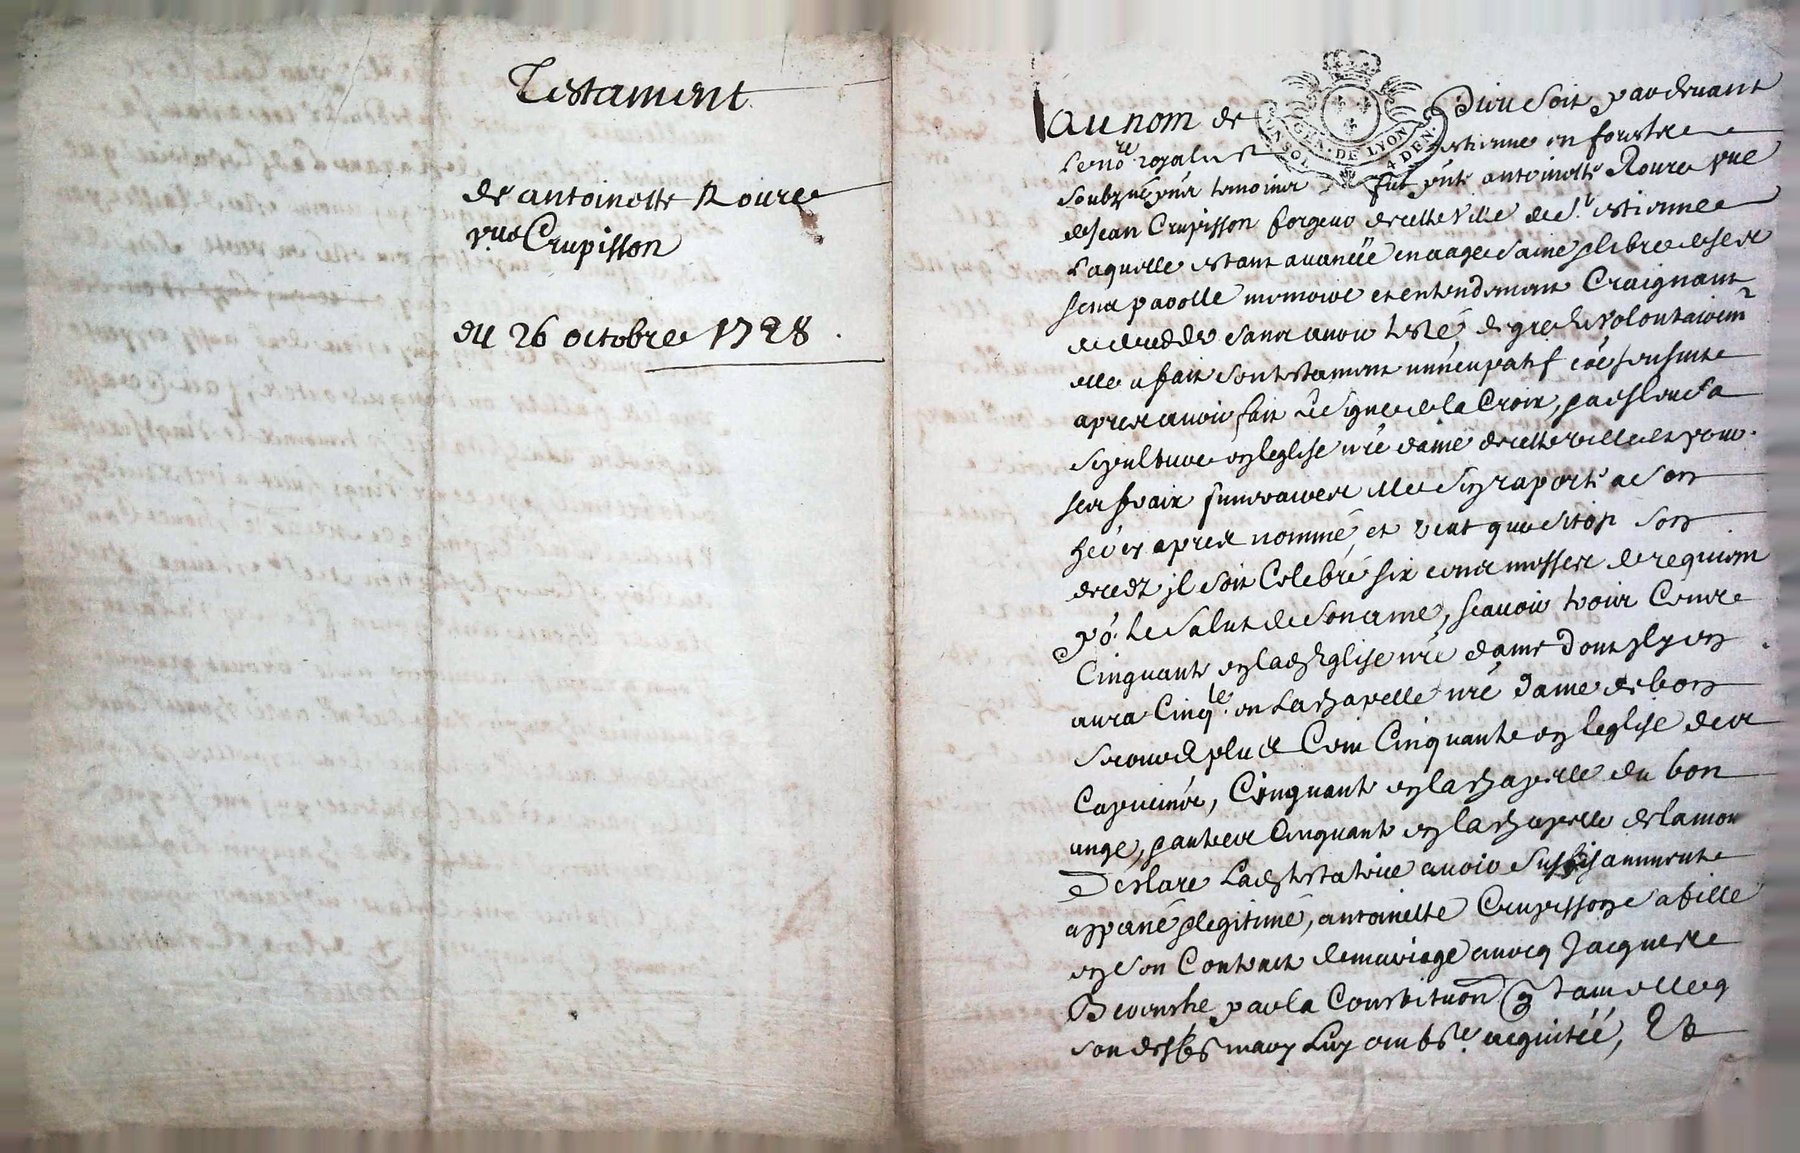 Testament
de antoinette Roure
vve Crupisson
du 26 octobre 1728.
GEN. DE LYON
UN SOL 4 DEN.
au nom de Dieu soit pardevant
le no.re royal a St estienne en forest
soubzne pnr temoins fut pnte antoinette Roure vve
de Jean Crupisson forgeur de cette ville de St estienne
Laquelle estant avancée en aage saine & libre de ses
sens parolle memoire et entendement Craignant
de deceder sans avoir testé, de gre & volontairemt
elle a fait son testament nuncupatif
apres avoir fait Le signe de la Croix, a esleu sa
sepulture en leglise nre dame de cette ville et pour
ses fraix funeraires elle sen raporte a son
her apres nommé, et veut que sitot son
deced il soit Celebré six cens messes de requiem
po. le salut de son ame, scavoir trois Cens
Cinquante en lad Eglise nre dame dont
aura Cinqte en La chapelle nre dame de bon
secours plus Cent Cinquante en leglise des
Capucins, Cinquante en la chapelle du bon
ange, & autres Cinquante en la chapelle de
Declare Lad testatrice avoir suffisamment
appané & legitimé, antoinette Crupisson sa fille
en son Contract de mariage avecq Jacques
par la Constitution
son mary Luy ont acquitée, Et